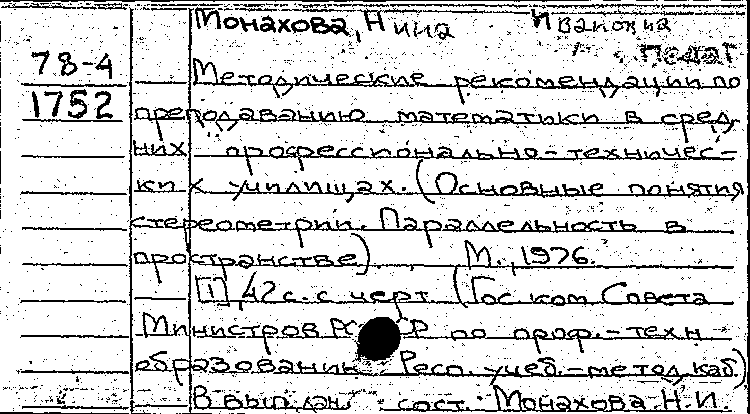 Монахова, Нина Ивановна
Педаг
78-4 Методические рекомендации по
1752 преподаванию математики в сред-
них профессионально-техничес-
ких училищах. (Основные понятия
стереометрии. Параллельность в
пространстве). М., 1976.
[1], 42 с. с черт. (Гос. ком. Совета
Министров РС Р по проф.-техн
образованию Респ. учеб.-метод. каб.)
В вып. дан. сост. Монахова Н.И.